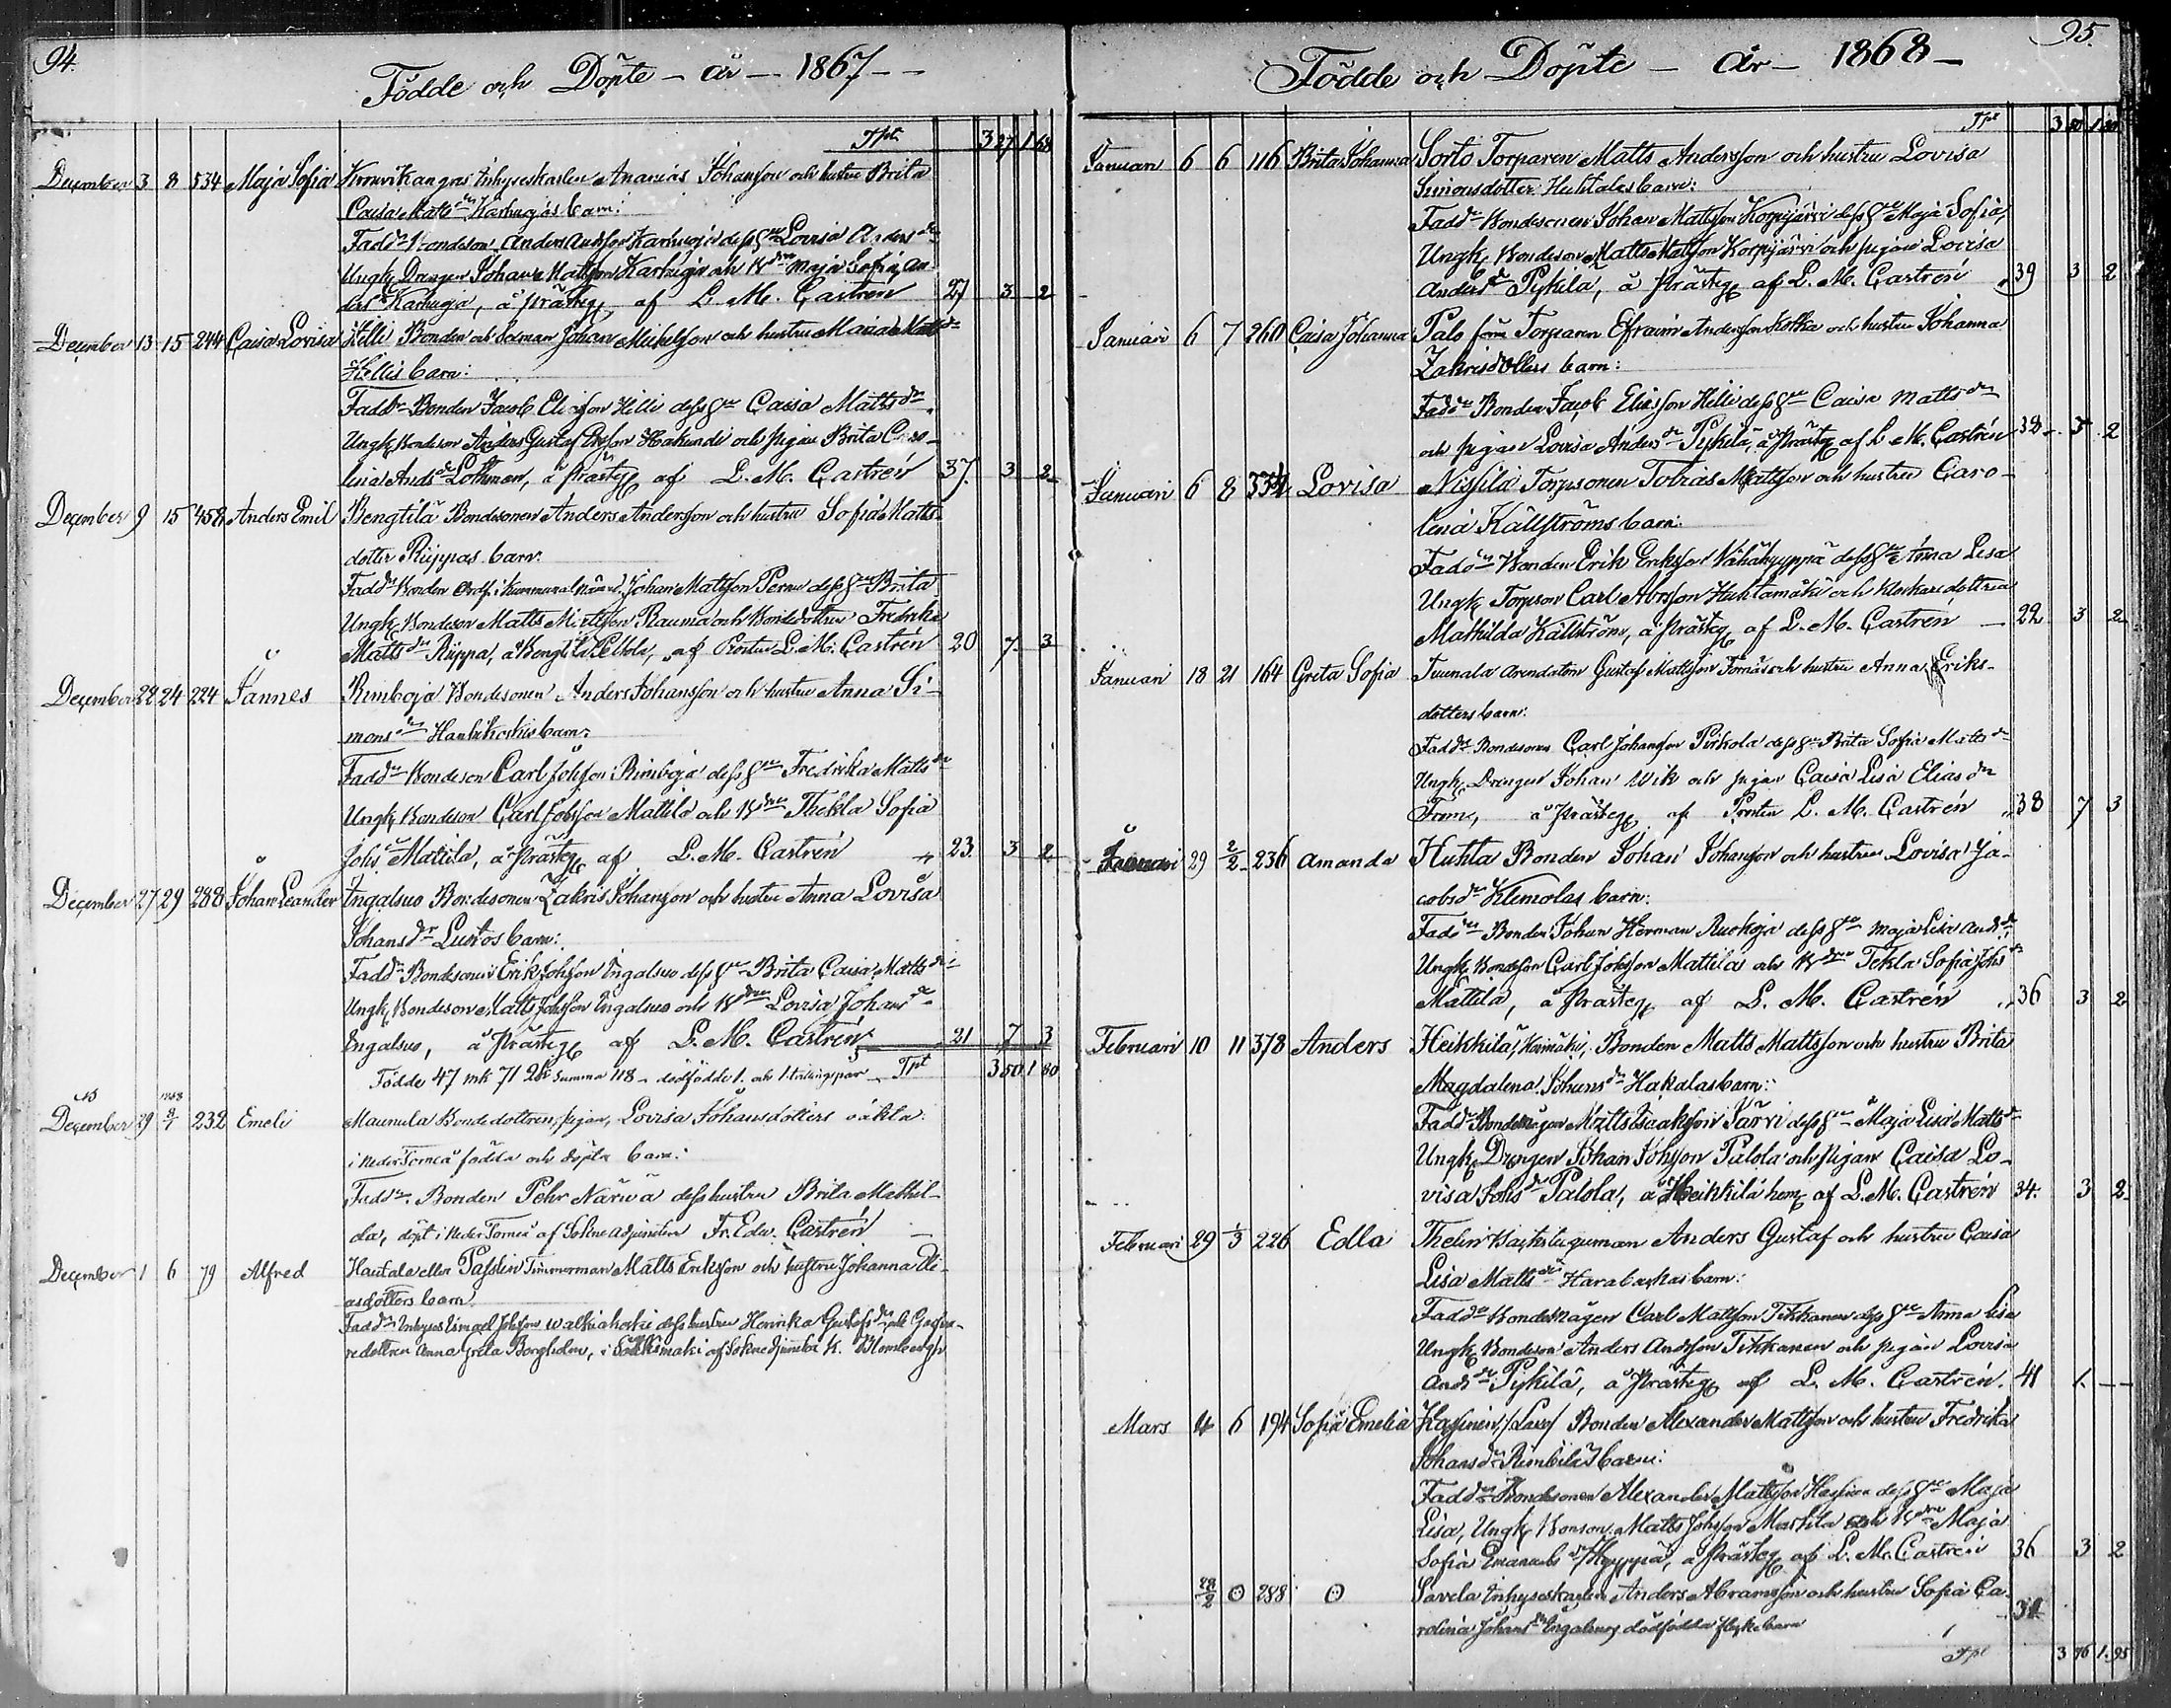 94.
Födde och Döpte - år - 1867 - -
Tpt 3 27 1 68
December 3 8 534 Maja Sofia Inhyseskarlen Ananias Johansson och hustru Brita
Caisa Matts dr Karhugas barn:
Fadd: Bondeson Anders Andsson Karhuoja dess Hu Lovisa Anders dr
Ungk. Drengen Johan Mattsson Karhuoja och Maja Sofia An-
ders Karhuoja, å Prästeg af L. M. Castrén 27 3 2
December 13 15 244 Caisa Lovisa Helli Bonden och Johan Mickelsson och hustru Maria Matts dr
Hellis barn:
Fadd: Bonden Jacob Eliasson Helli dess Hu Caisa Matts dr
Ungk. Bondeson Anders Gustaf Ersson Hakundi och pigan Brita Caro-
lina Ands dr Lothman, å Prästeg af L. M. Castrén 37. 3 2
December 9 15 458 Anders Emil Bengtilä Bondesonen Anders Andersson och hustru Sofia Matts-
dotter Rüppas barn:
Fadd: Bonden Ordf. i Kommunal Johan Mattsson Pernu dess Hu Brita
Ungk. Bondeson Matts Mattsson Rauma och Bondedottren Fredrika
Matts dr Rüppa, å Bengtilä, af Prosten L. M. Castrén 20 7 3
December 22 24 224 Jannes Rimboja Bondesonen Anders Johansson och hustru Anna Si-
mons dr barn:
Fadd: Bondeson Carl Johsson Rimboja dess Hu Fredrika Matts dr
Ungk. Bondeson Carl Johsson Mattila och Thekla Sofia
Johs dr Mattila, å Prästeg af L. M. Castrén 23. 3 2
December 27 29 288 Johan Leander Ingalsuo Bondesonen Zakris Johansson och hustru Anna Lovisa
Johans dr Luostos barn:
Fadd: Bondesonen Erik Johsson Ingalsuo dess Hu Brita Caisa Matts dr
Ungk. Bondeson Matts Johsson Ingalsuo och Lovisa Johans dr
Engalsuo, å Prästeg af L. M. Castrén 21 7 3
Födde 47 mk 71 summa 118 - dödfödde 1. och 1 tvillingpar Tpt 3 50 1 80
December 29 1868 8/1 232 Emeli Maunula Bondedottren, pigan, Lovisa Johansdotters oäkta
i Neder Torneå födda och döpta barn:
Fadd: Bonden Pehr Närvä dess hustru Brita Mathil-
da, döpt i Neder Torneå af Sokne adjuncten Fr. Edv. Castrén
December 1 6 79 Alfred Hautala eller Timmerman Matts Eriksson och hustru Johanna Eli-
asdotters barn
Fadd: Inhyses Ismael Johsson dess hustru Henrika Gustafs dr
redottren Anna Greta Borgholm, i af Sokneadjuncten K. Blombergh
95.
Födde och Döpte - År - 1868 -
Tpt 3 50 1 80
Januari 6 6 116 Brita Johanna Sorto Torparen Matts Andersson och hustru Lovisa
Simonsdotter Huhtalas barn:
Fadd: Bondesonen Johan Mattsson Korpijärvi dess Hu Maja Sofia,
Ungk. Bondeson Matts Mattsson Korpijärvi och pigan Lovisa
Anders dr Pykilä, å Prästeg af L. M. Castrén 39 3 2
Januari 6 7 260 Caisa Johanna Palo Torparen Efraim Andersson Kotka och hustru Johanna
Zakrisdotters barn:
Fadd: Bonden Jacob Eliasson Helli dess Hu Caisa Matts dr
och pigan Lovisa Anders dr Pykilä, å Prästeg af L. M. Castrén 38 3 2
Januari 6 8 334 Lovisa Nissilä Torpsonen Tobias Mattsson och hustru Caro-
lina Källströms barn:
Fadd: Bonden Erik Eriksson Vähähyyppä dess Hu Anna Lisa
Ungk. Torpson Carl Abrsson Huhtamäki och Klockaredottren
Mathilda Källström, å Prästeg af L. M. Castrén 22 3 2
Januari 18 21 164 Greta Sofia Juunala Arendatorn Gustaf Mattsson Tornias och hustru Anna Eriks-
dotters barn:
Fadd: Bondesonen Carl Johansson Pirkola dess Hu Brita Sofia Matts dr
Ungk. Drengen Johan Wik och pigan Caisa Lisa Elias dr
å Prästeg af Prosten L. M. Castrén 38 7 3
Januari 29 2/2 236 Amanda Huhta Bonden Johan Johansson och hustru Lovisa Ja-
cobs dr Klemolas barn:
Fadd: Bonden Johan Herman Ruokoja dess Hu Maja Lisa Ands dr
Ungk. Bondeson Carl Johsson Mattila och Tekla Sofia Johs dr
Mattila, å Prästeg af L. M. Castrén 36 3 2
Februari 10 11 378 Anders Heikkilä, Bonden Matts Mattsson och hustru Brita
Magdalena Johans dr Hakalas barn:
Fadd: Bondemågen Matts Isaaksson Järvi dess Hu Maja Lisa Matts dr
Ungk. Drengen Johan Johsson Palola och pigan Caisa Lo-
visa Johs dr Palola, å Heikkilä hem af L. M. Castrén 34. 3 2
Februari 29 1/3 226 Edla Thelin Anders Gustaf och hustru Caisa
Lisa Matts dr barn:
Fadd: Bondemågen Carl Mattsson Tikkanen dess Hu Anna Lisa
Ungk. Bondeson Anders Andsson Tikkanen och pigan Lovisa
Ands dr Pykilä, å Prästeg af L. M. Castrén. 41 1. -
Mars 4 6 194 Sofia Emelia Hasinen /Laxo/ Bonden Alexander Mattsson och hustru Fredrika
Johans dr Rimbiläs barn:
Fadd: Bondesonen Alexander Mattsson Hasinen dess Hu Maja
Lisa, Ungk. Bonson Matts Johsson Martila och Maja
Sofia Emanuels dr Hyyppä, å Prästeg af L. M. Castrén 36 3 2
28/2 0 288 0 Savela Inhyseskarlen Anders Abramsson och hustru Sofia Ca-
rolina Johans dr Engalsuos dödfödda flickebarn 31
Tpt 3 76 1. 95